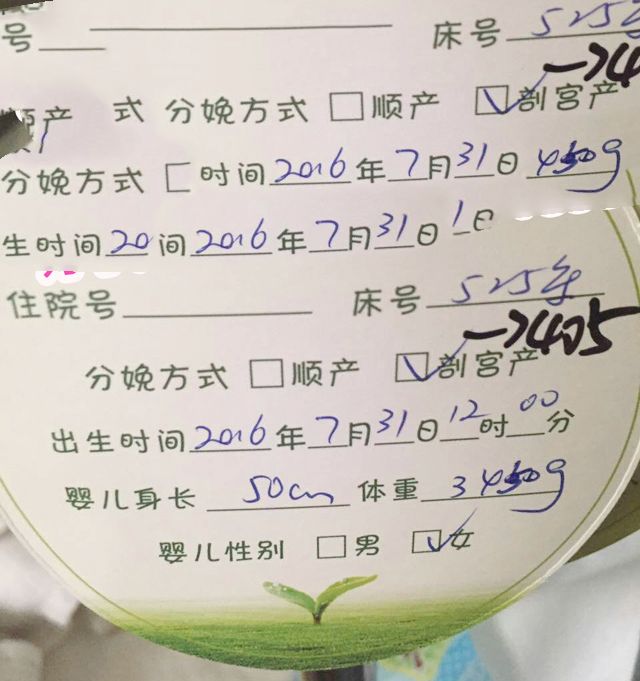 号 床号 525
→4
顺产 式 分娩方式 □顺产 ☑剖宫产
分娩方式 时间2016年7月31日 450g
生时间20 间2016年7月31日1日
住院号 床号 525
→405
分娩方式 □顺产 ☑剖宫产
出生时间2016年7月31日12时00分
婴儿身长 50cm 体重 3450g
婴儿性别 □男 ☑女